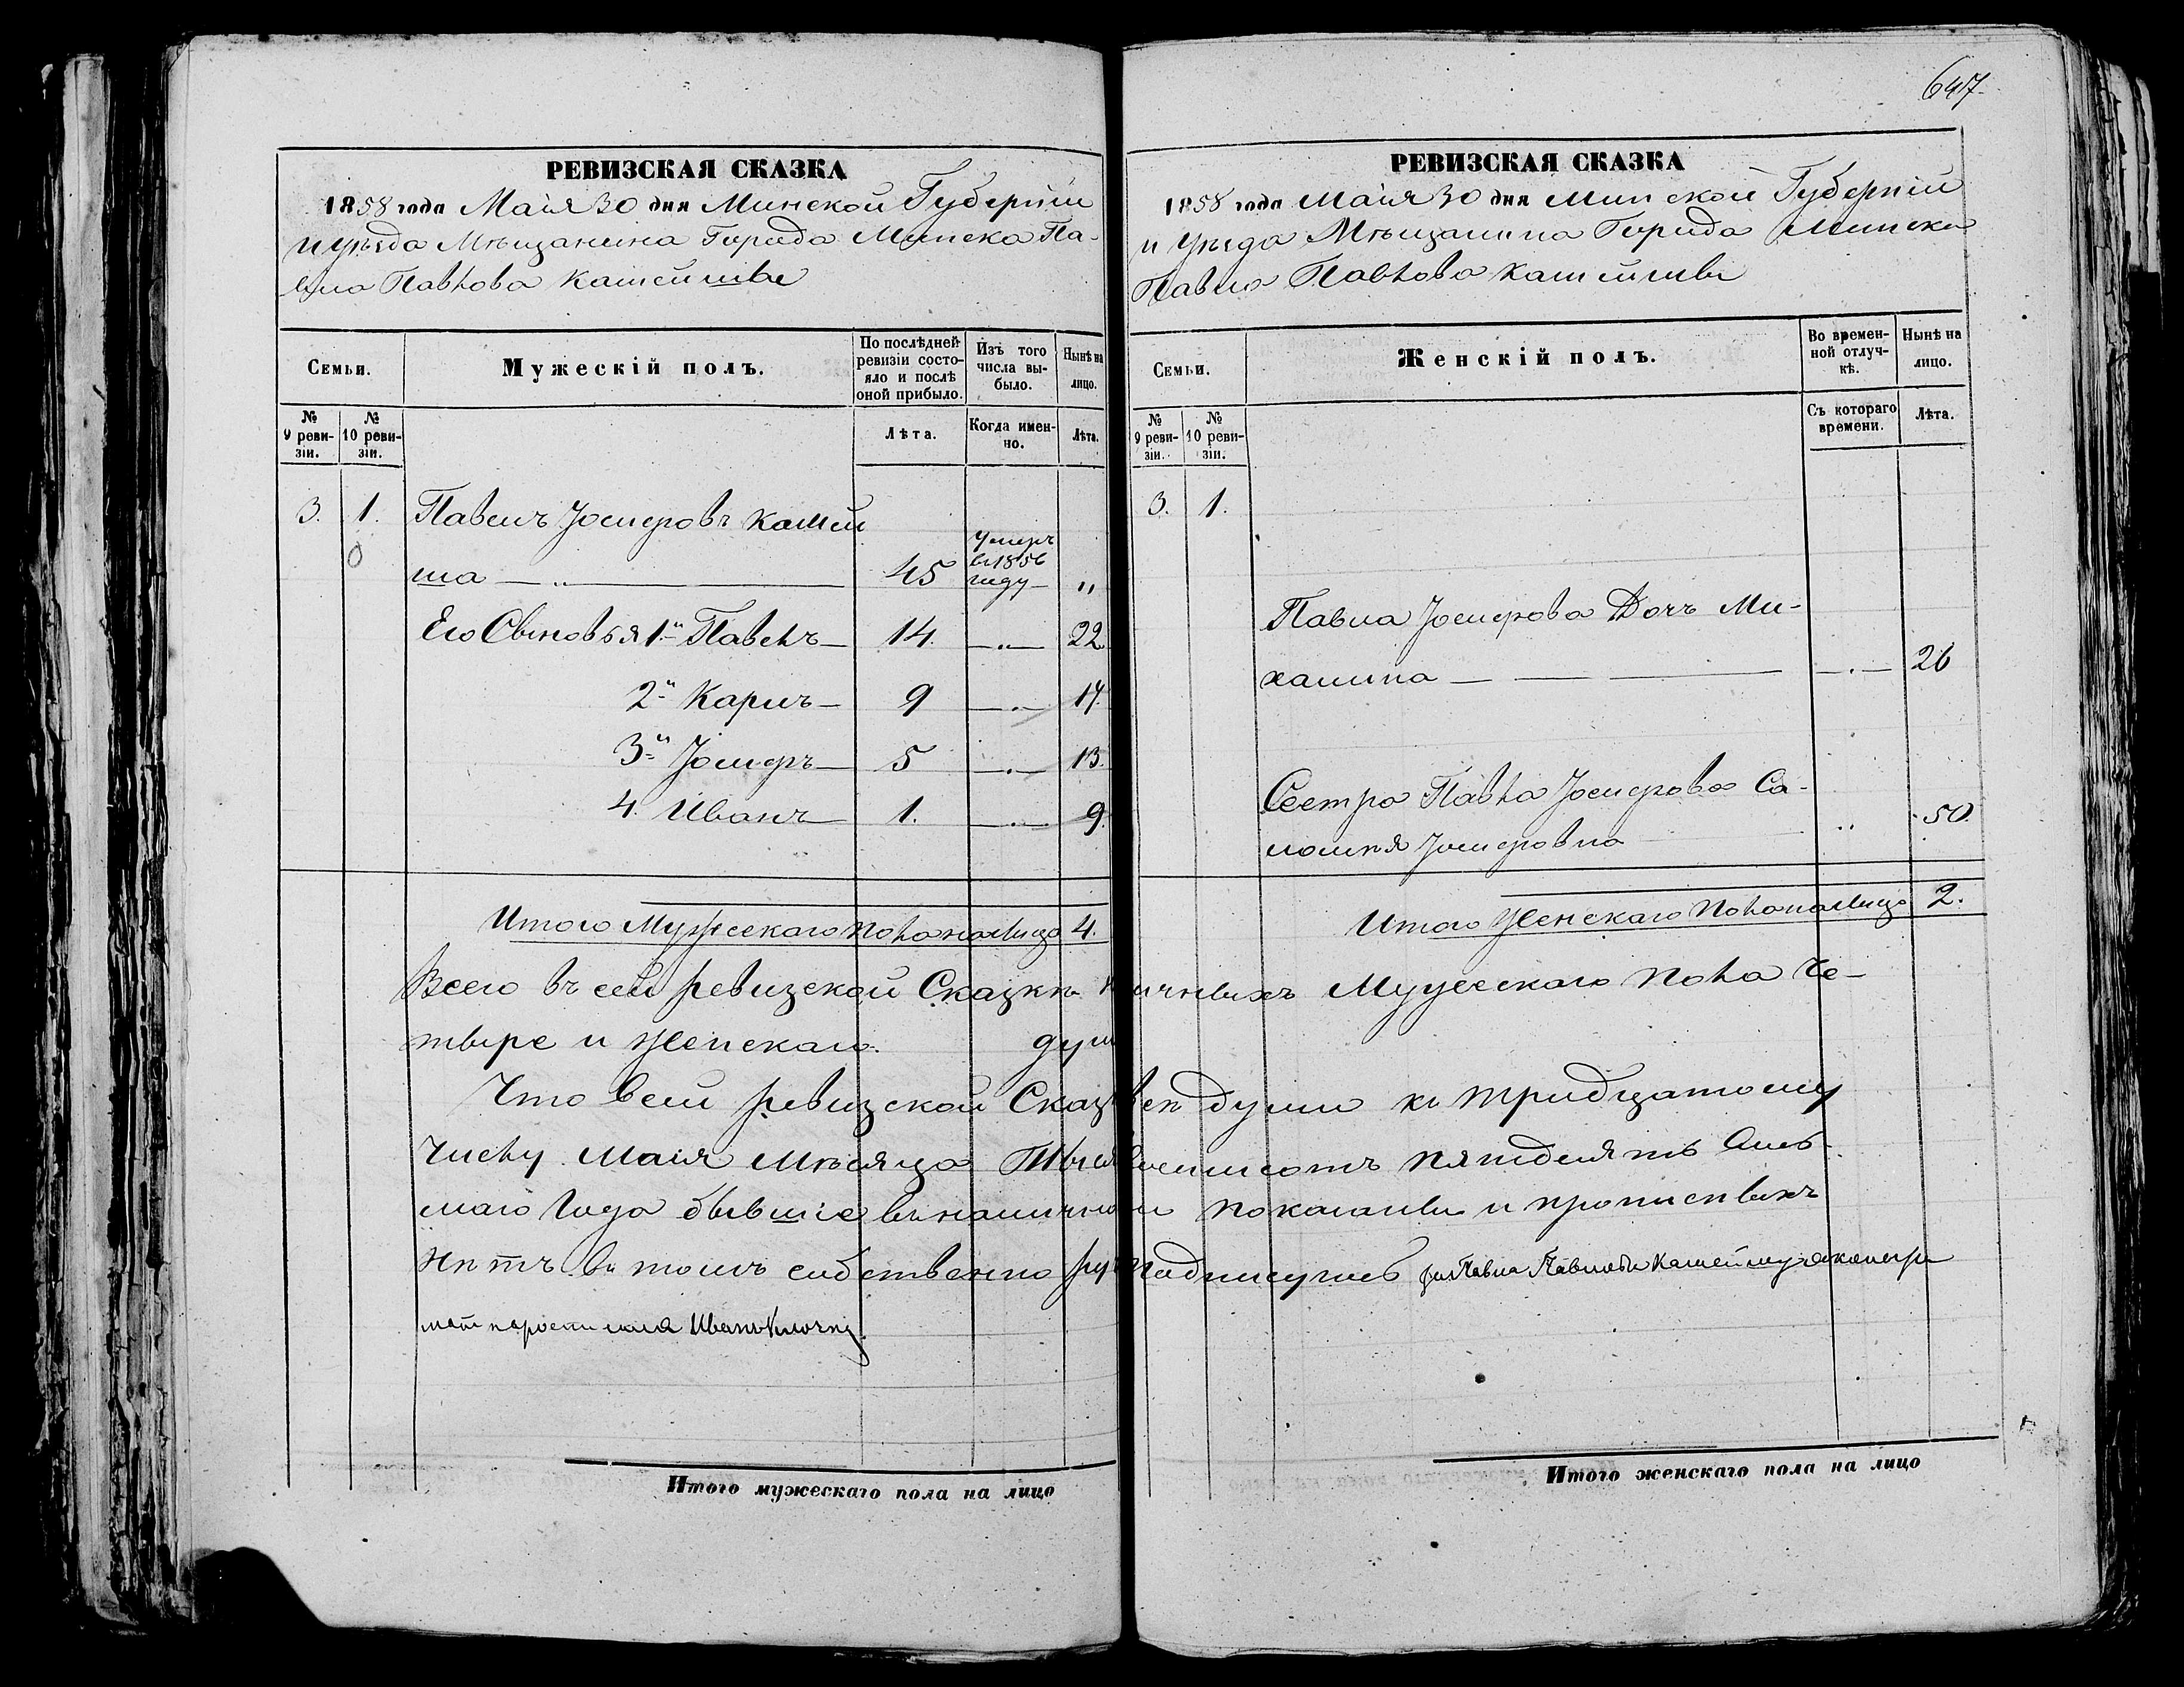 647
РЕВИЗСКАЯ СКАЗКА
1858 года Маія 30 дня Минской Губерніи
и уѣзда Мѣщанина Города Минска Па-
вла Павлова Кашейши
Семьи.
Мужескій полъ.
По послѣдней ревизіи состояло и послѣ оной прибыло.
Изъ того числа выбыло.
Нынѣ на лицо.
№ 9 ревизіи.
№ 10 ревизіи.
Лѣта.
Когда именно.
Лѣта.
3. 1. Павелъ Іосифовъ Кашей
ша 45 Умеръ в 1856 году „
Его Сыновья 1й Павелъ 14. 22
2й Карлъ 9 17.
3й Іосифъ 5 13.
4. Иванъ 1. 9.
Итого Мужескаго пола на лицо 4.
РЕВИЗСКАЯ СКАЗКА
1858 года Маія 30 дня Минской Губерніи
и Уѣзда Мѣщанина Города Минска
Павла Павлова Кашейши
Семьи.
Женскій полъ.
Во временной отлучкѣ.
Нынѣ на лицо.
№ 9 ревизіи.
№ 10 ревизіи.
Съ котораго времени.
Лѣта.
3. 1.
Павла Іосифова Дочь Ми-
халина 26
Сестра Павла Іосифова Са-
ломея Іосифовна 50.
Итого Женскаго пола на лицо 2.
Всего въ сей ревизской Сказкѣ Мужескаго пола че-
тыре и Женскаго душ
Что всей ревизской души къ тридцатому
числу Маія Мѣсяца пятдесятъ Ось-
маго Года бывшіе въ показаны и прописныхъ
Нѣтъ въ томъ собственно подписуюсь за Павла Павлова Кашейшу
Иванъ
Итого мужескаго пола на лицо
Итого женскаго пола на лицо